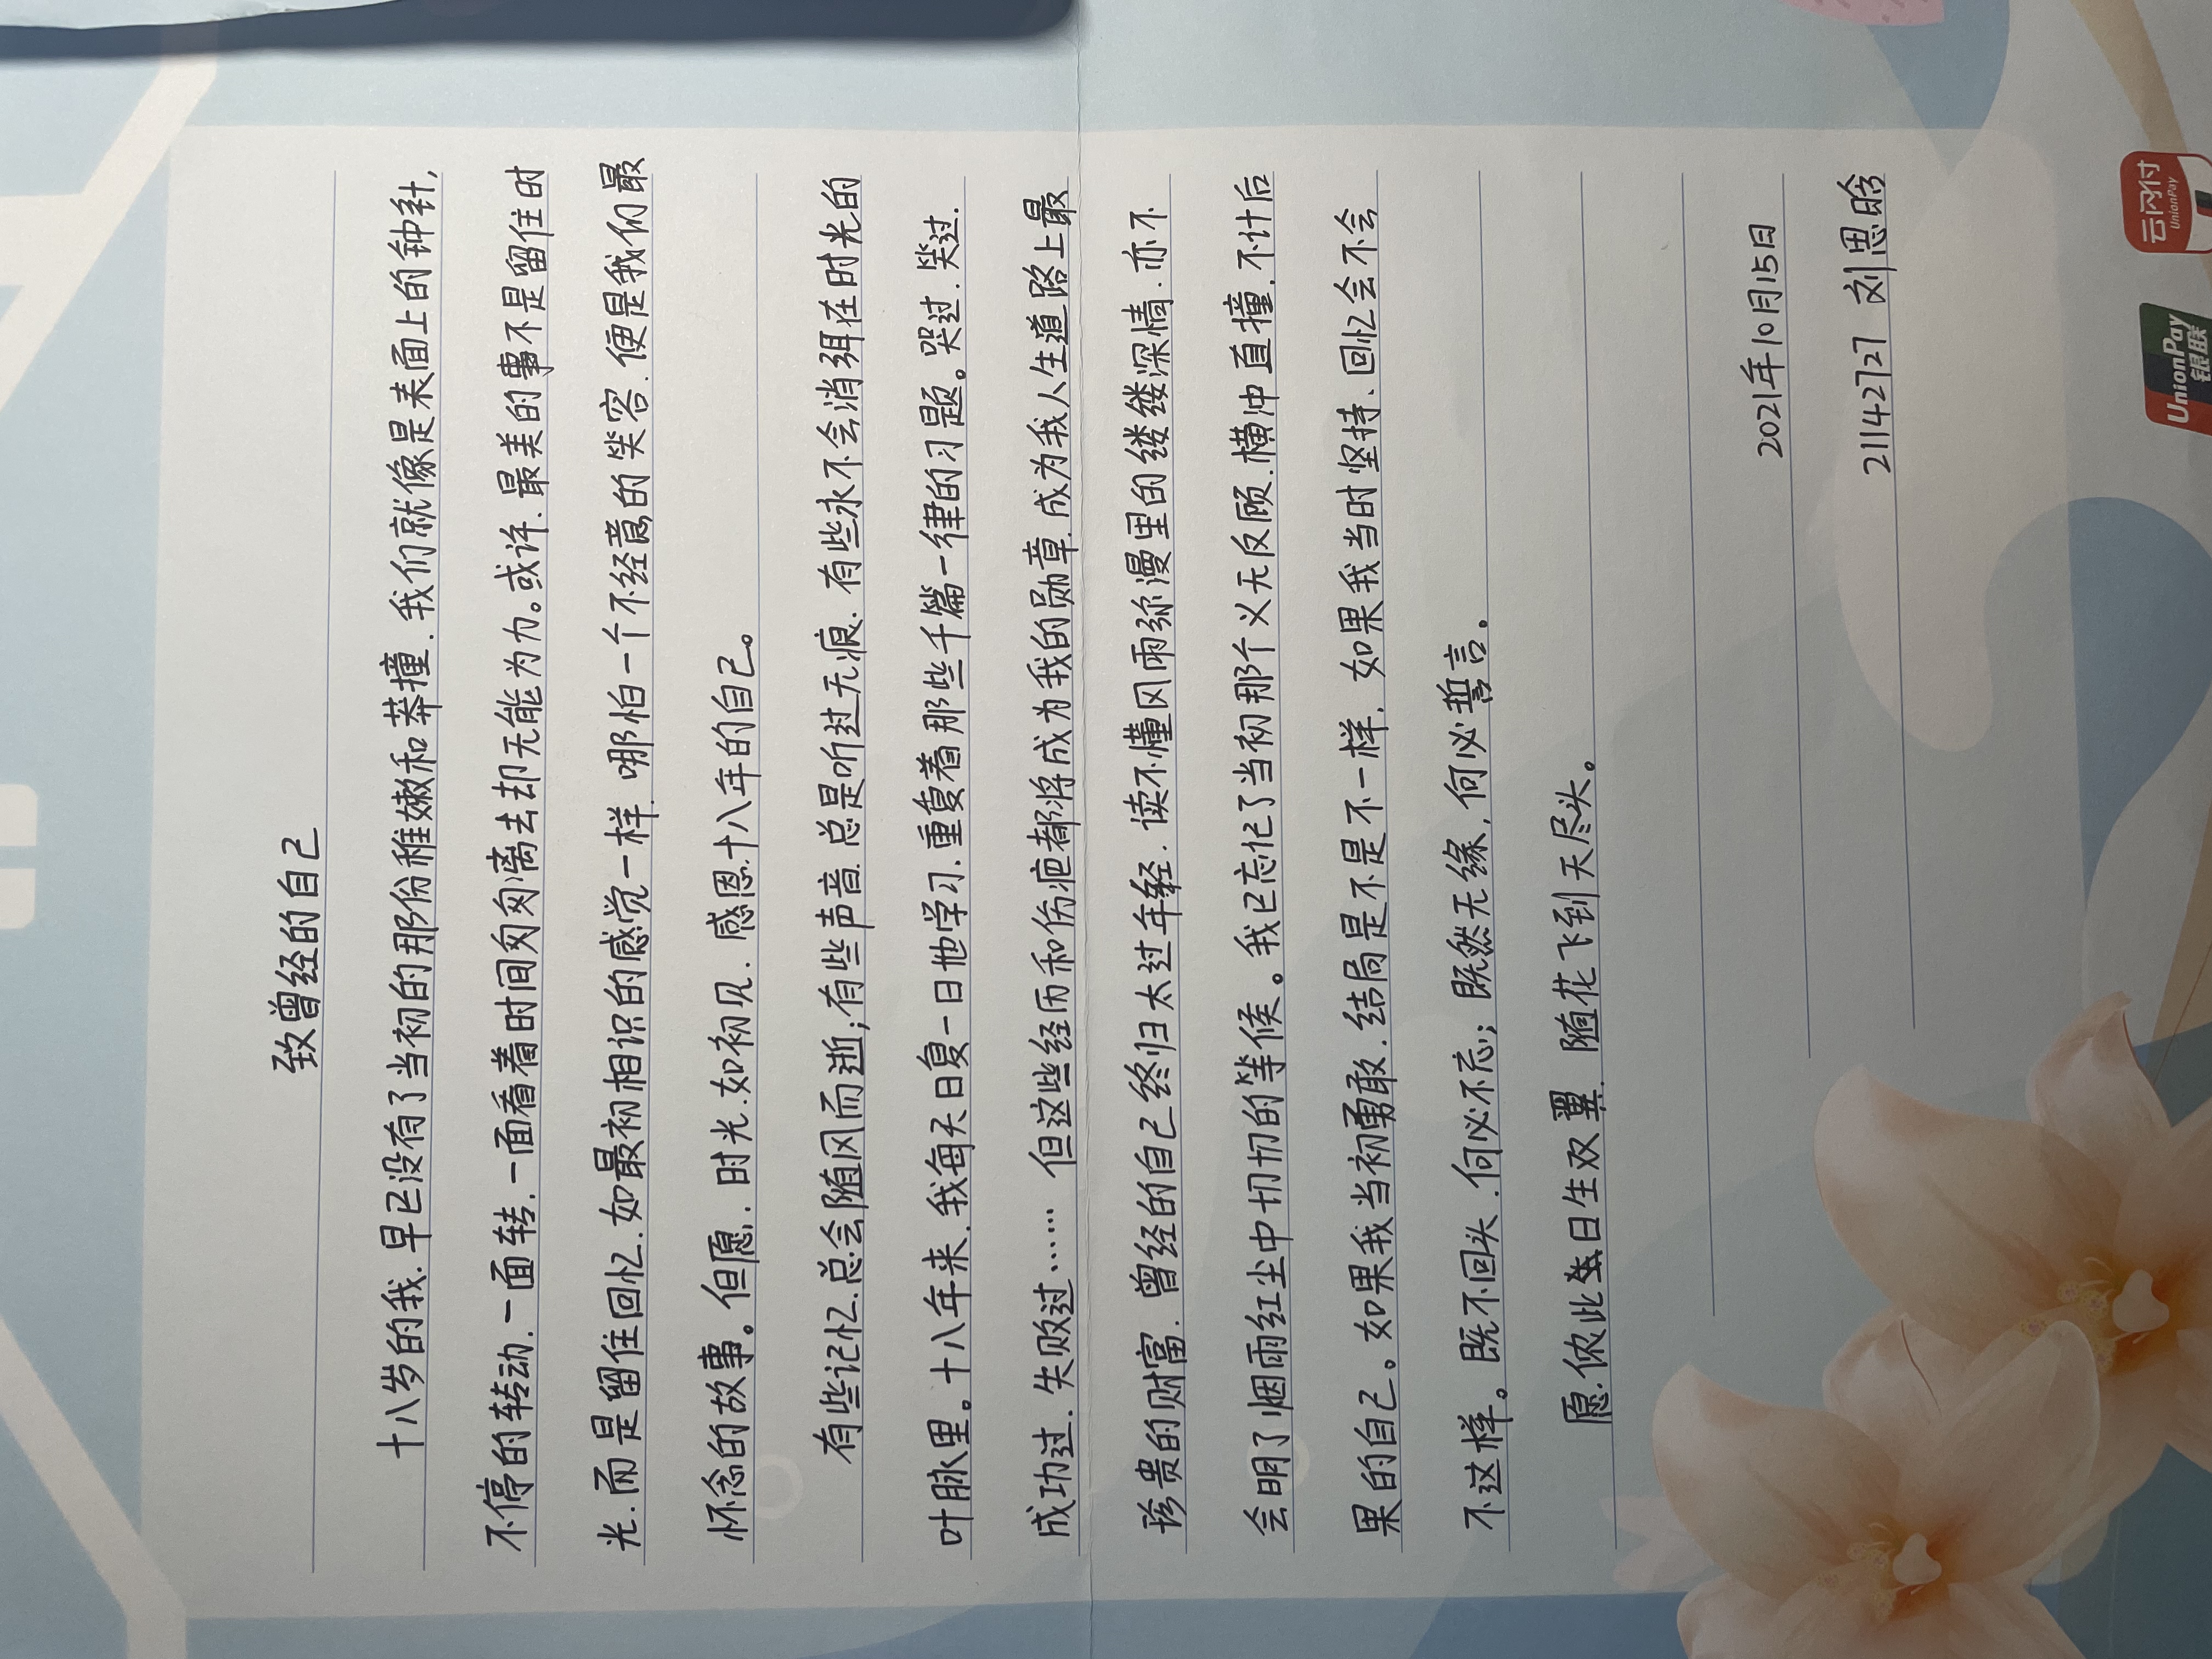 致曾经的自己
十八岁的我.早已没有了当初的那份稚嫩和莽撞.我们就像是表面上的钟针,
不停的转动.一面转.一面看着时间匆匆离去却无能为力。或许.最美的事不是留住时
光.而是留住回忆.如最初相识的感觉一样.哪怕一个不经意的笑容.便是我们最
怀念的故事。但愿.时光.如初见.感恩十八年的自己。
有些记忆.总会随风而逝;有些声音.总是听过无痕.有些永不会消弭在时光的
叶脉里。十八年来.我每天日复一日地学习.重复着那些千篇一律的习题。哭过.笑过.
成功过.失败过……但这些经历和伤疤都将成为我的勋章.成为我人生道路上最
珍贵的财富.曾经的自己终归太过年轻.读不懂风雨弥漫里的缕缕深情.亦不
会明了烟雨红尘中切切的等候。我已忘记了当初那个义无反顾.横冲直撞.不计后
果的自己。如果我当初勇敢.结局是不是不一样.如果我当时坚持、回忆会不会
不这样。既不回头.何必不忘;既然无缘,何必誓言。
愿侬此日生双翼.随花飞到天尽头。
2021年10月15日
21142727 刘思晗
云闪付
UnionPay
UnionPay
银联